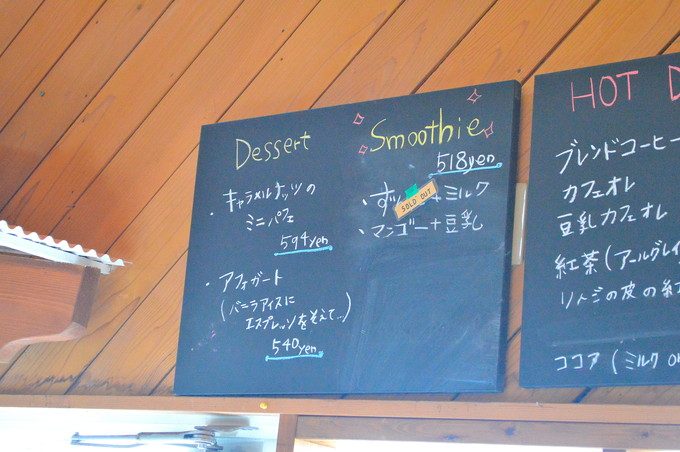 Dessert
・キャラメルナッツの
ミニパフェ
594yen
・アフォガート
(バニラアイスに
エスプレッソをそえて..)
540yen
Smoothie
518yen
+ミルク
SOLD OUT
・マンゴー+豆乳
HOT D
ブレンドコーヒー
カフェオレ
豆乳カフェオレ
紅茶(アールグレイ
の皮の紅
ココア(ミルク or